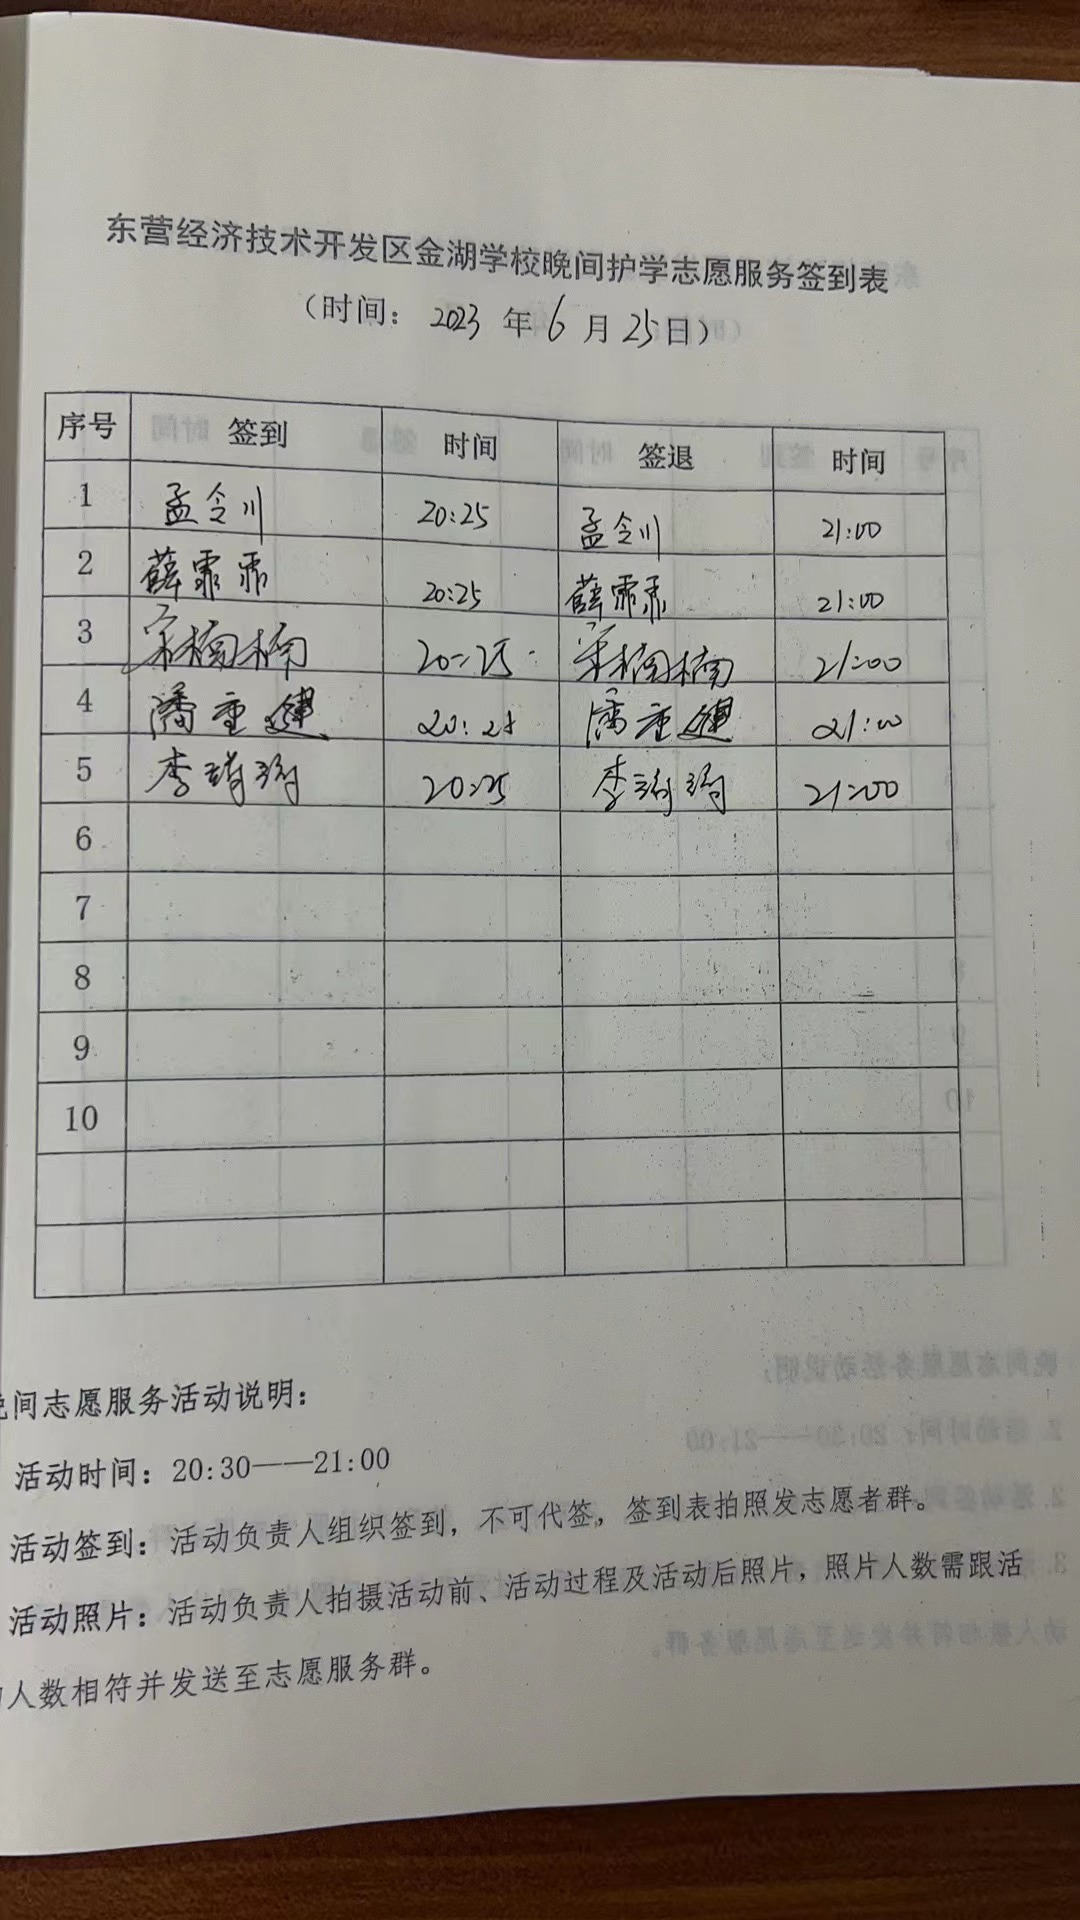 东营经济技术开发区金湖学校晚间护学志愿服务签到表
（时间：2023年6月25日）
序号 签到 时间 签退 时间
1 孟令川 20:25 孟令川 21:00
2 薛霏霏 20:25 薛霏霏 21:00
3 宋楠楠 20:25 宋楠楠 21:00
4 潘重建 20:25 潘重建 21:00
5 李 20:25 李 21:00
6
7
8
9
10
晚间志愿服务活动说明：
活动时间：20:30——21:00
活动签到：活动负责人组织签到，不可代签，签到表拍照发志愿者群。
活动照片：活动负责人拍摄活动前、活动过程及活动后照片，照片人数需跟活
动人数相符并发送至志愿服务群。